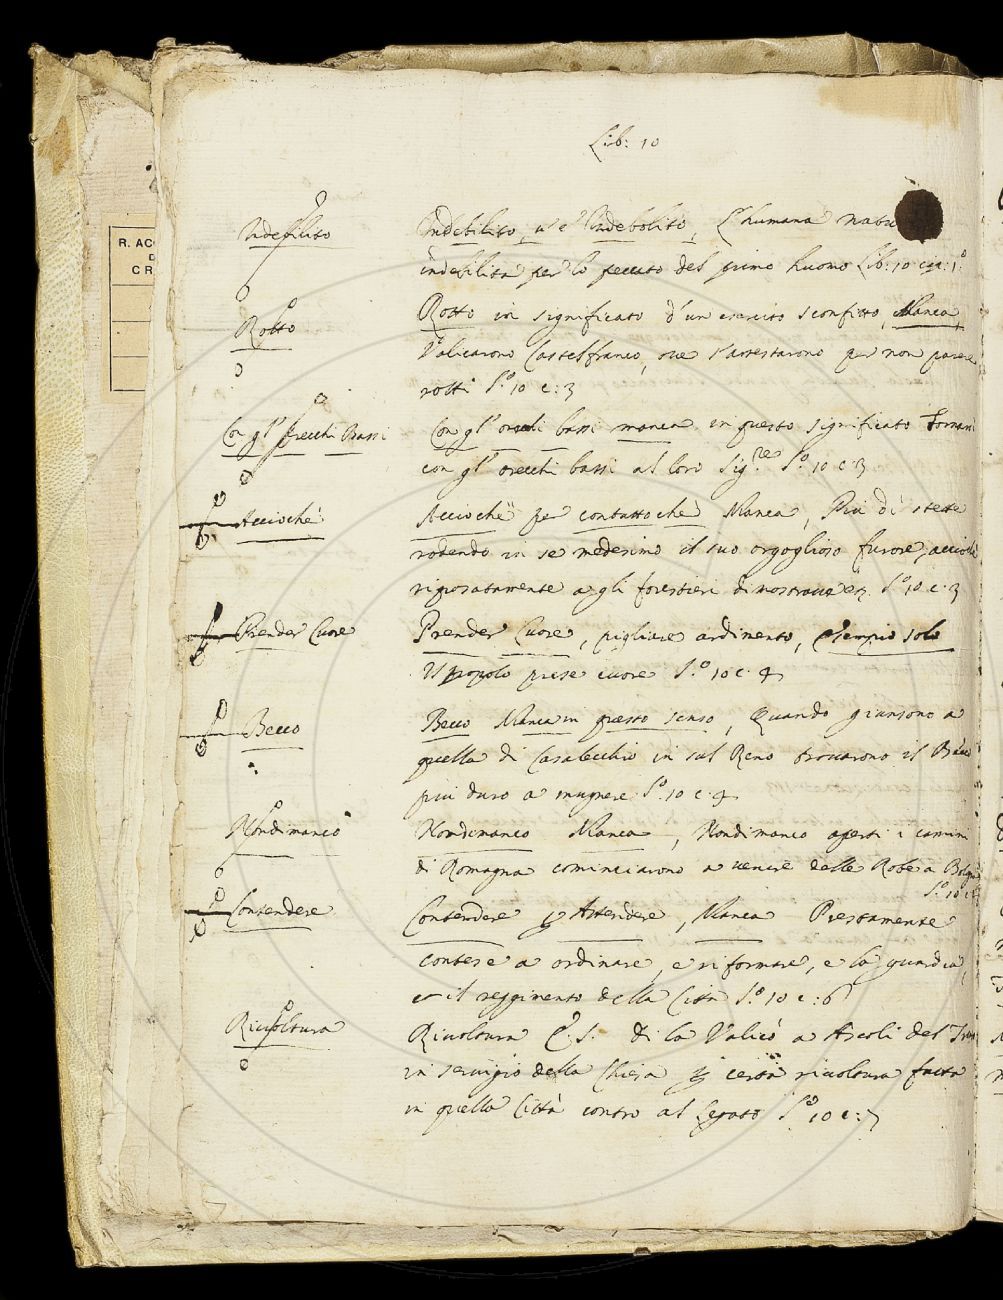 Lib: 10
R. AC
D
CR
Indebilito
Indebilito, u'è Indebolito, L'humana natu
indebilita per lo peccato del primo huomo Lib: 10 cap: 1.°
Rotto
Rotto in significato d'un esercito sconfitto, Manca,
Valicarono Castelfranco, oue s'arrestarono per non parere
rotti L.° 10 c: 3
Con gl' Orecchi Bassi
Con gl' orechi bassi manca in questo significato Tornam
con gl' orecchi bassi al loro Sig.re L.° 10 c. 3
Accioché
Accioché per contuttoché Manca, Più dì stette
rodendo in se medesimo il suo orgoglioso furore, acciochè
riposatamente a gli forestieri dimostraua L.° 10 c. 3
Prender Cuore
Prender Cuore, pigliare ardimento, esempio solo
Il popolo prese cuore L.° 10 c. 4
Becco
Becco Manca in questo senso, Quando giunsono a
quella di Casalecchio in sul Reno trouarono il Becco
piu duro a mugnere L.° 10 c. 4
Nondimanco
Nondimanco Manca, Nondimanco aperti i camini
di Romagna cominciarono a uenire delle Robe a Bologna
L.° 10 c.
Contendere
Contendere per Attendere, Manca Prestamente
contese a ordinare, e riformare, e la guardia,
et il reggimento della Città L.° 10 c: 6
Riuoltura
Riuoltura E. S. di là Valicò a Ascoli del Tron
in seruigio della Chiesa per certa riuoltura fatta
in quella Città contro al Legato L.° 10 c: 7